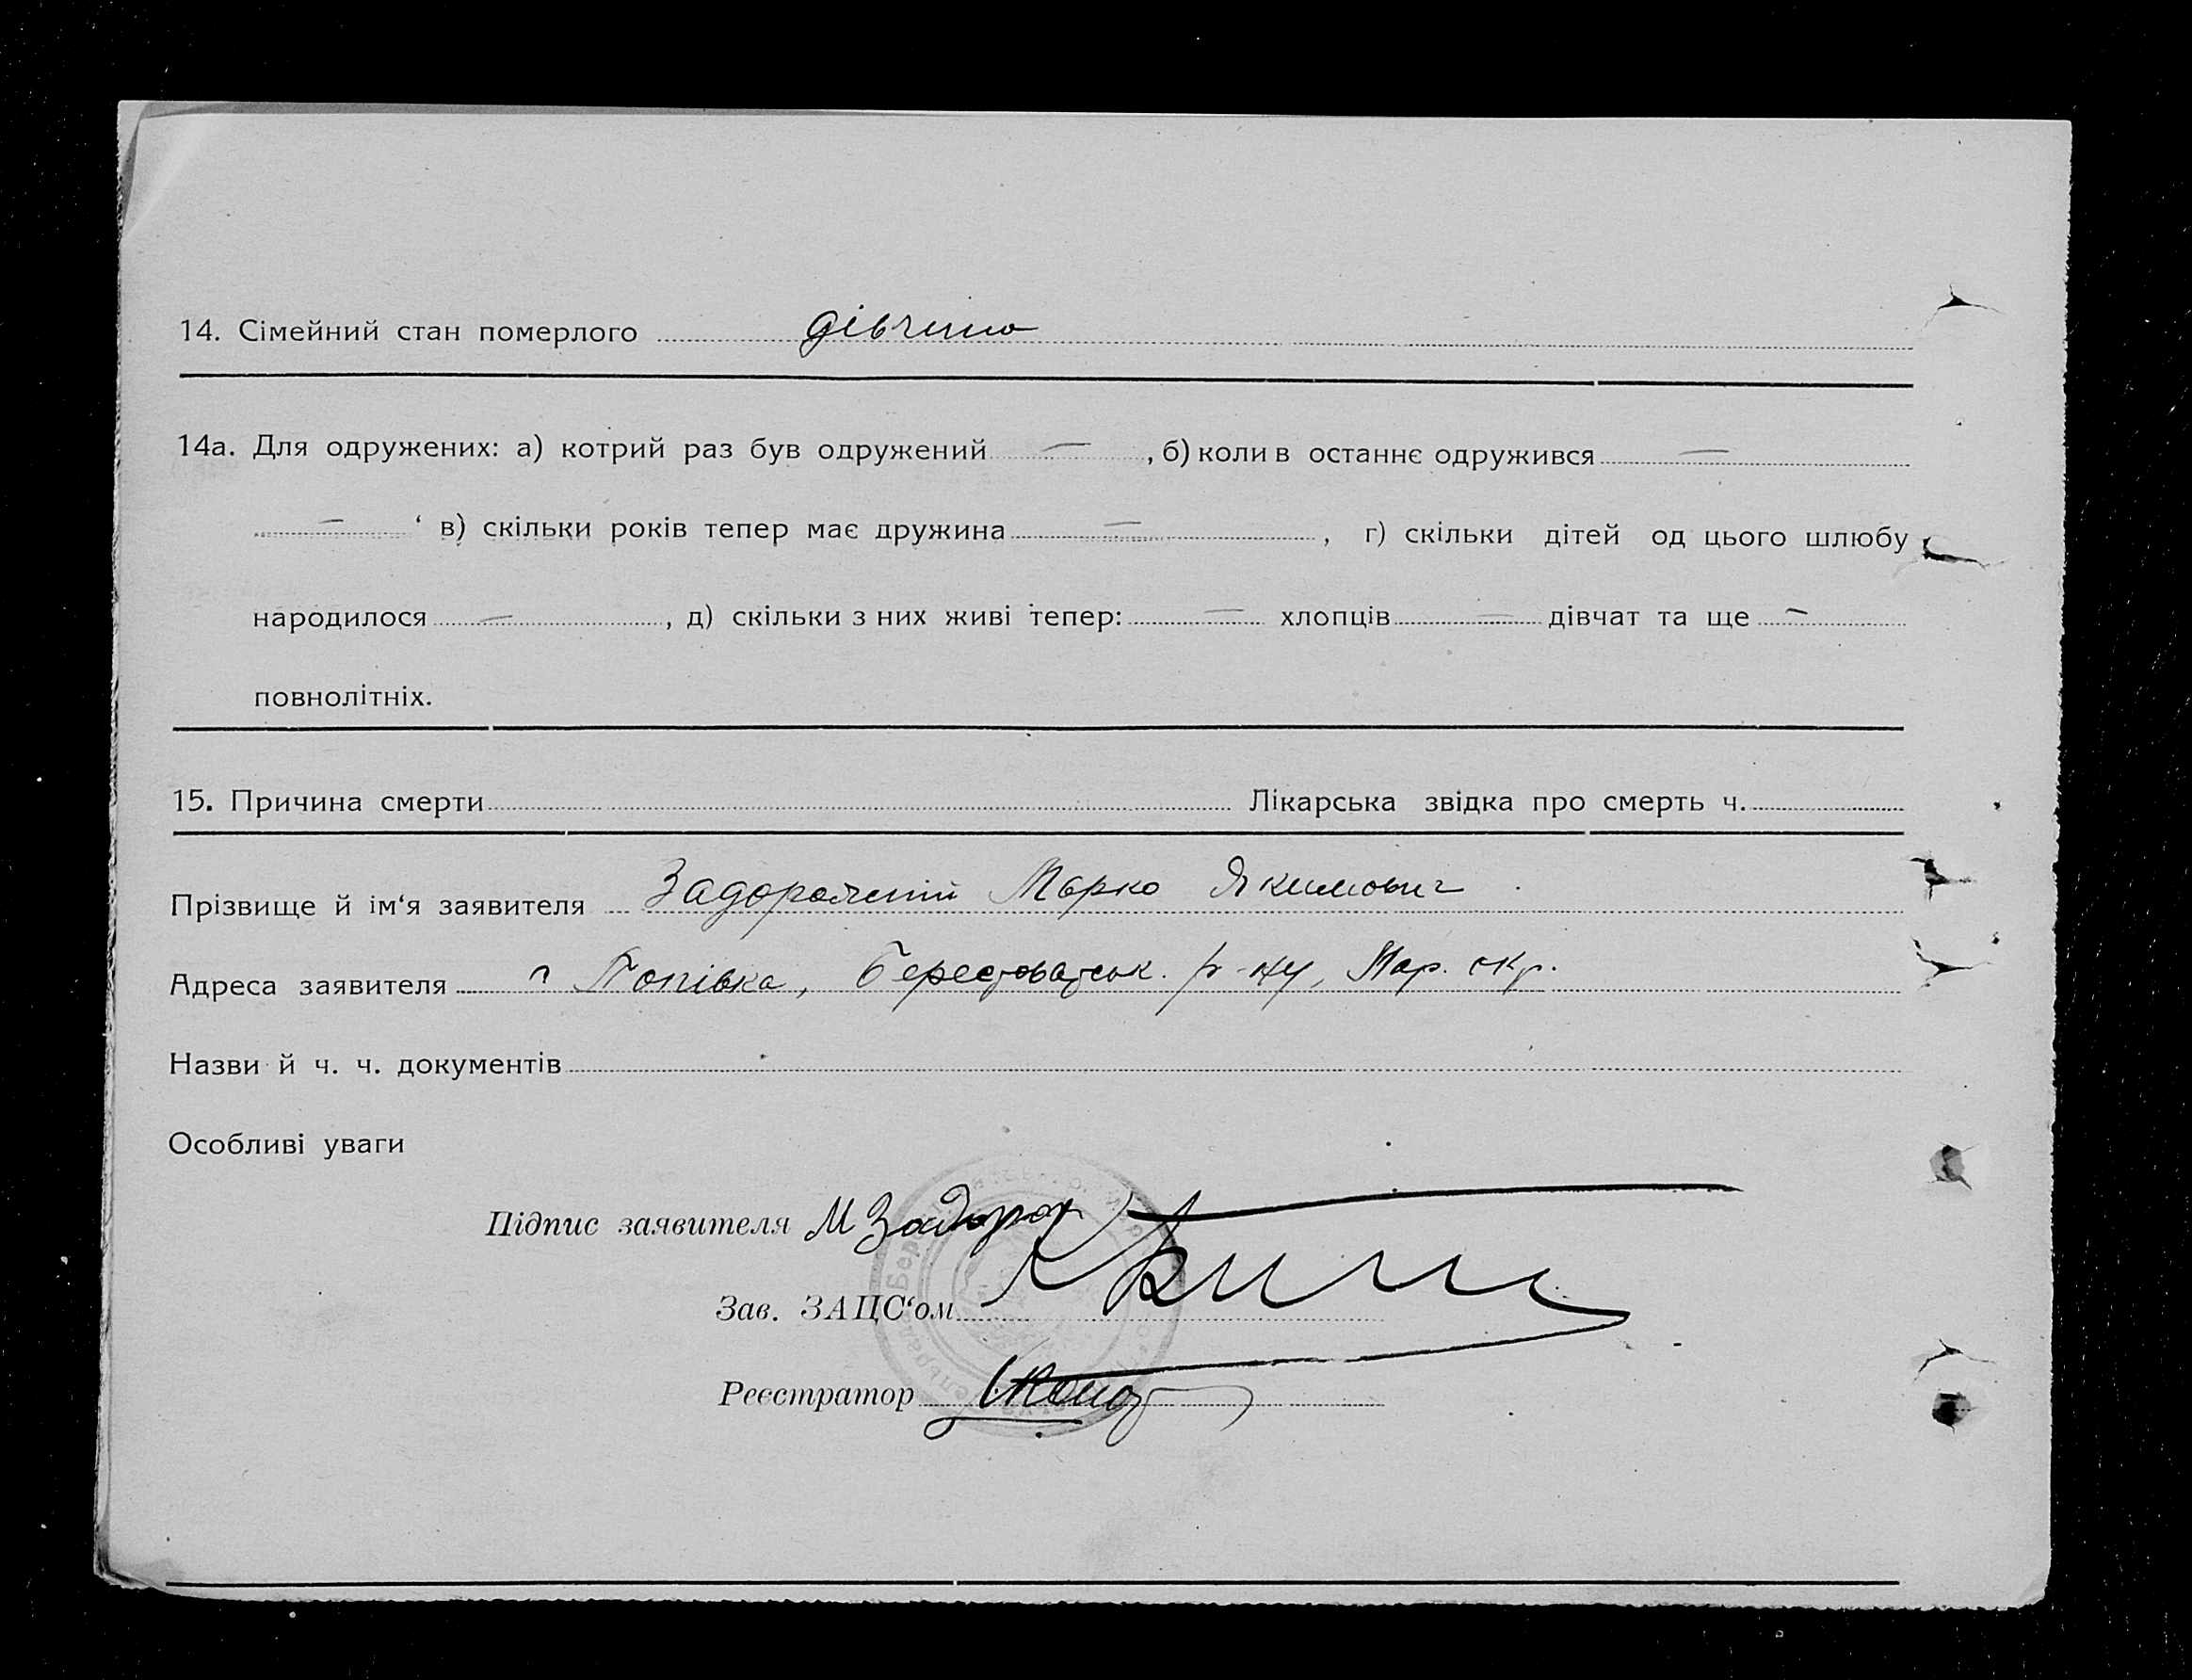 14. Сімейний стан померлого дівчина
14а. Для одружених: а) котрий раз був одружений — , б) коли в останнє одружився —
— ‘ в) скільки років тепер має дружина — , г) скільки дітей од цього шлюбу
народилося — , д) скільки з них живі тепер: — хлопців — дівчат та ще —
повнолітніх.
15. Причина смерти Лікарська звідка про смерть ч.
Прізвище й ім‘я заявителя Задорожний Марко Якимович
Адреса заявителя Попівка, Берестоватськ. р-ну, окр.
Назви й ч. ч. документів
Особливі уваги
Підпис заявителя М Задорож
Зав. ЗАЦС‘ом
Реєстратор